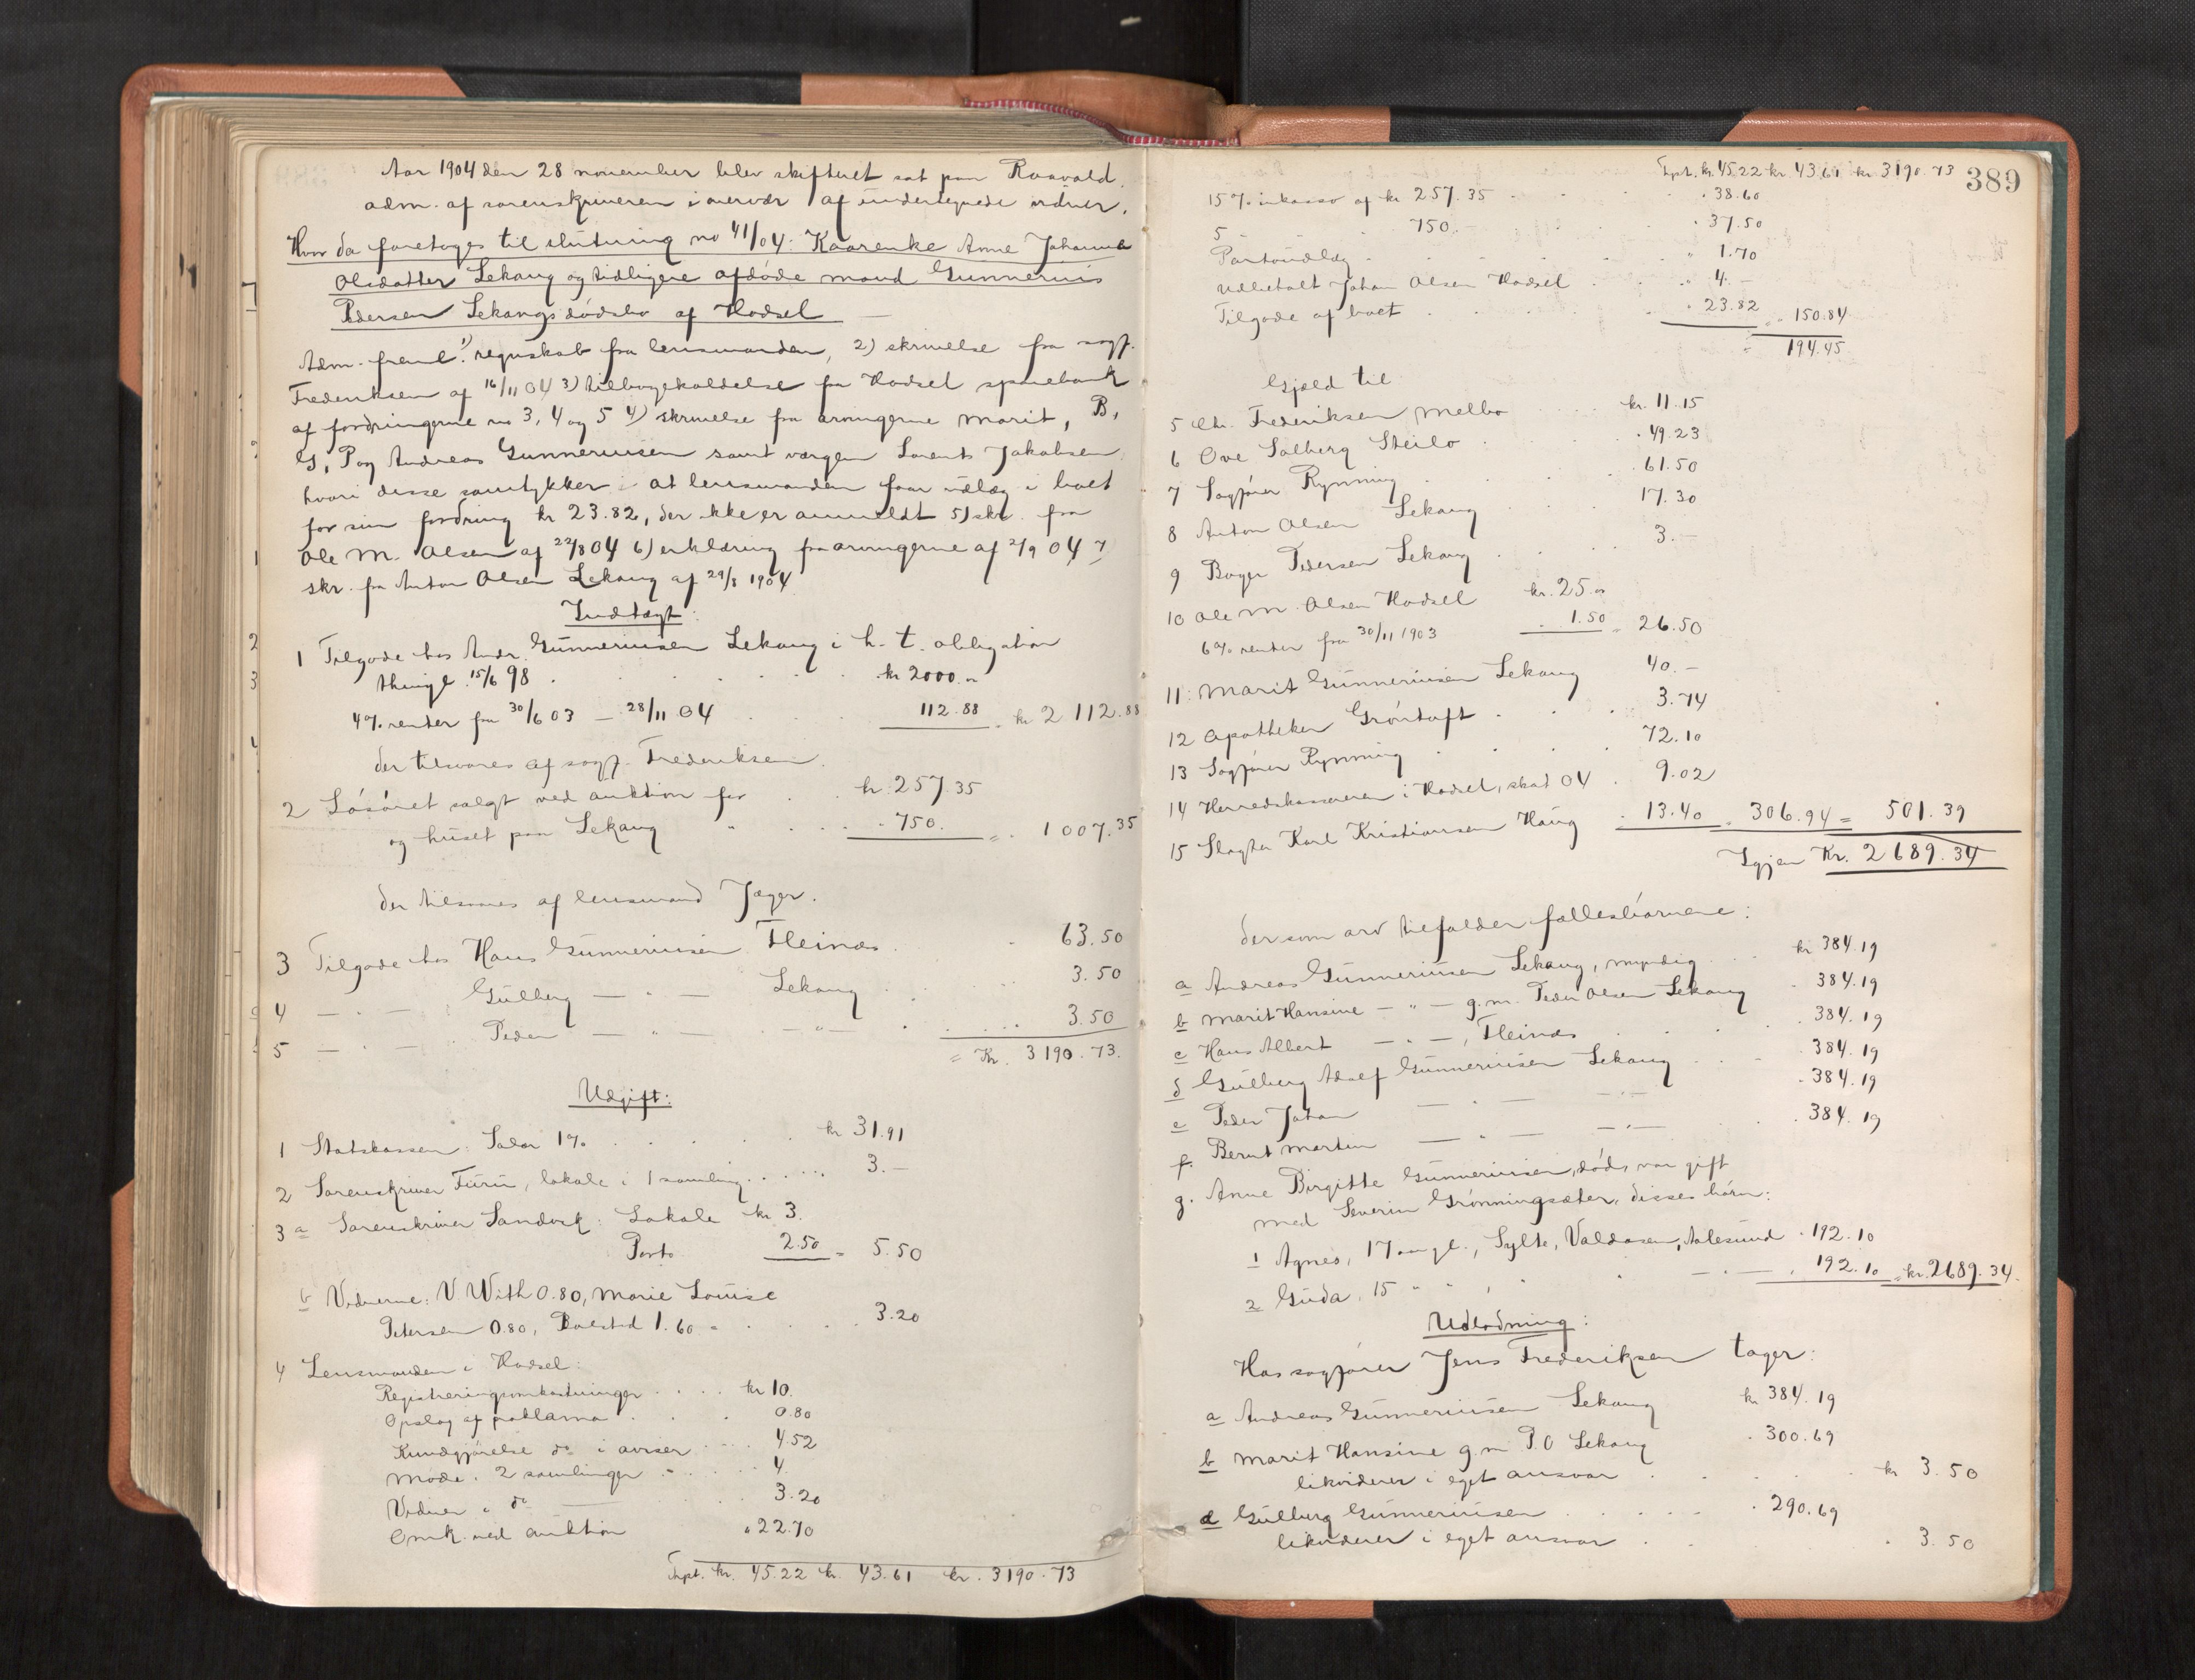 Aar 1904 den 28 november blev skifteret sat paa Raavald
adm. af sorenskriveren i overvær af undertegnede vidner.
Hvor da foretoges til slutning no 41/04: Kaarenke Anne Johanna
Olsdatter Lekang og tidligere afdøde mand Gunnerius
Pedersen Lekangs dødsbo af Hadsel
Adm. freml. 1) regnskab fra lensmanden, 2) skrivelse fra sagf.
Frederiksen af 16/11 04 3) tilbagekaldelse fra Hadsel sparebank
af fordringerne no 3, 4 og 5 4) skrivelse fra arvingerne Marit, B,
G, P og Andreas Gunneriussen samt værgen Lorents Jakobsen
hvori disse samtykker i at lensmanden faar udlæg i boet
for sin fordring kr 23.82, der ikke er anmeldt 5) skr. fra
Ole M. Olsen af 22/8 04 6) erklæring fra arvingerne af 2/9 04 7)
skr. fra Anton Olsen Lekang af 29/8 1904
Indtægt:
1 Tilgode hos Andr. Gunneriussen Lekang i h. t. obligation
thingl. 15/6 98 . kr 2000.00
4% renter fra 30/6 03 – 28/11 04 112.88 = kr 2112.88
der tilsvares af sagf. Frederiksen.
2 Løsøret solgt ved auktion for kr. 257.35
og huset paa Lekang " 750. = 1007.35
der tilsvares af lensmand Jæger.
3 Tilgode hos Hans Gunneriussen Fleines 63.50
4 — " — Gulberg — " — Lekang 3.50
5 — " — Peder — " — — " — 3.50
= Kr. 3190.73.
Udgift:
1 Statskassen: Salær 1% kr 31.91
2 Sorenskriver Furu, lokale i 1 samling 3.–
3 a Sorenskriver Sandvik: Lokale kr 3.
Porto 2.50 = 5.50
b Vidnerne: V. With 0.80, Marie Louise
Petersen 0.80, Bolstad 1.60 = 3.20
4 Lensmanden i Hadsel:
Registreringsomkostninger kr 10.
Opslag af proklama 0.80
Kundgjørelse do i aviser 4.52
Møde i 2 samlinger 4.
Vidner i do 3.20
Omk. ved auktion " 22.70
Trpt. kr. 45.22 kr. 43.61 kr. 3190.73
389
Trpt. kr. 45.22 kr. 43.61 kr 3190.73
15% inkasso af kr 257.35 38.60
5 - - - 750.– 37.50
Portoudlæg 1.70
Udbetalt Johan Olsen Hadsel 4.–
Tilgode af boet 23.82 = 150.84
= 194.45
Gjæld til
5 Chr. Frederiksen Melbo kr. 11.15
6 Ove Solberg Steilo 49.23
7 Sagfører Rynning 61.50
8 Anton Olsen Lekang 17.30
9 Bager Pedersen Lekang 3.–
10 Ole M. Olsen Hadsel kr. 25.00
6% renter fra 30/11 1903 1.50 = 26.50
11 Marit Gunneriussen Lekang 40.–
12 Apotheker Grøntoft 3.74
13 Sagfører Rynning 72.10
14 Herredskassereren i Hadsel, skat 04 9.02
15 Slagter Karl Kristiansen Haug 13.40 = 306.94 = 501.39
Igjen Kr. 2689.34
der som arv tilfalder fællesbørnene:
a Andreas Gunneriussen Lekang, myndig kr 384.19
b Marit Hansine — " — g. m. Peder Olsen Lekang 384.19
c Hans Albert — " —, Fleines 384.19
d Gulberg Adolf Gunneriussen Lekang 384.19
e Peder Johan — " — — " — 384.19
f. Bernt Martin — " — — " — 384.19
g. Anne Birgitte Gunneriussen, død, var gift
med Severin Grønningsæter, disses børn:
1 Agnes, 17 aar gl., Sylte, Valdøsen, Aalesund 192.10
2 Guda, 15 " " , " — " — 192.10 = kr. 2689.34.
Udlodning:
Hos sagfører Jens Frederiksen tager:
a Andreas Gunneriussen Lekang kr 384.19
b Marit Hansine g. m P. O Lekang 300.69
likviderer i eget ansvar kr 3.50
d Gulberg Gunneriussen 290.69
likviderer i eget ansvar 3.50